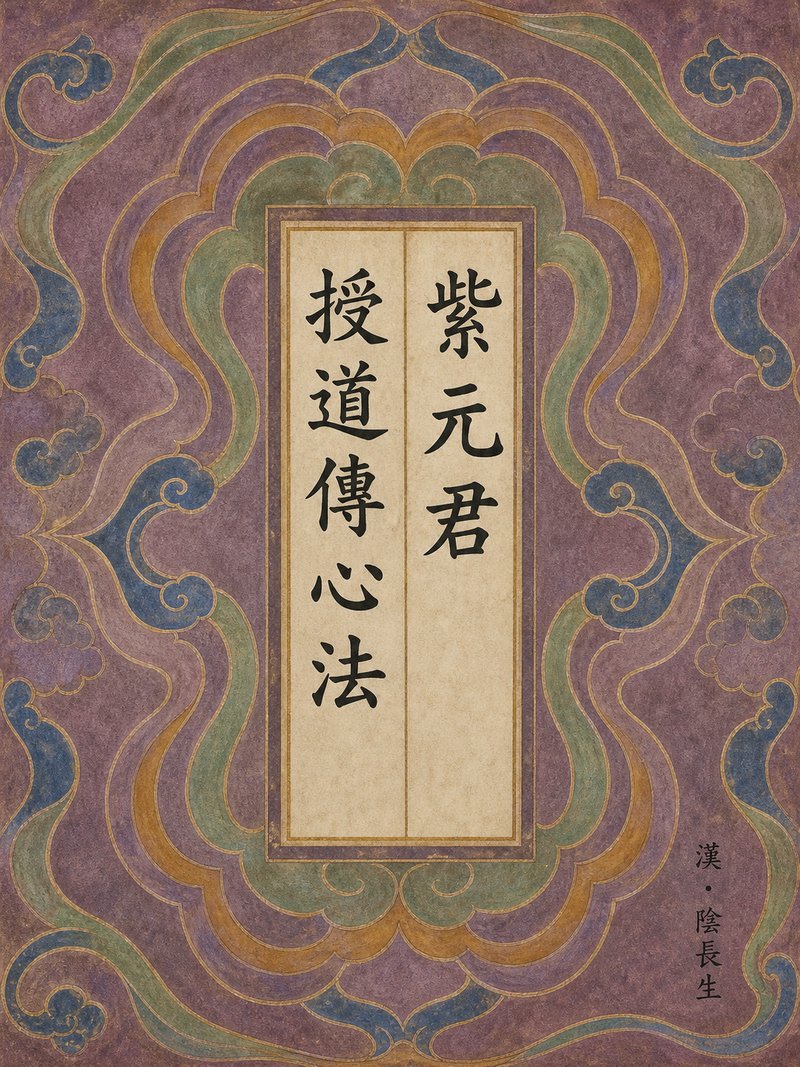 紫元君
授道傳心法
漢・陰長生